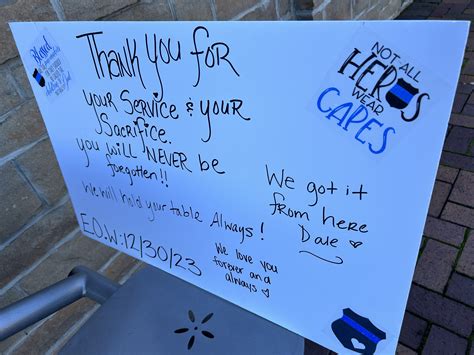 THANK YOU FOR
your Service & your
Sacrifice.
you will NEVER be
forgotten!!
We will hold your table Always!
E.O.W: 12/30/23
We got it
from here
Dale
We love you
forever and
always
NOT ALL
HEROS
WEAR
CAPES